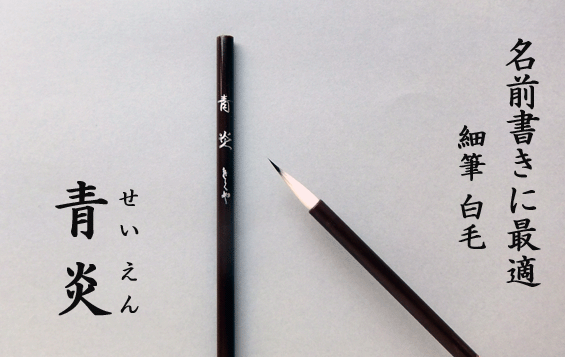 名前書きに最適
細筆 白毛
青炎
せいえん
青炎